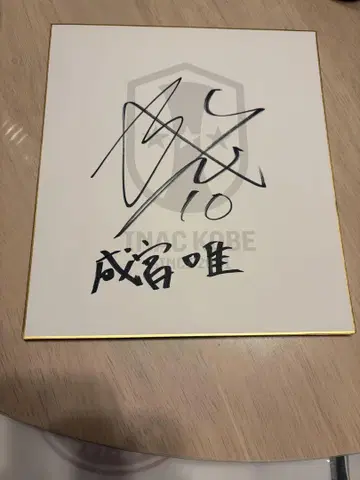 10
INAC KOBE
成宮唯